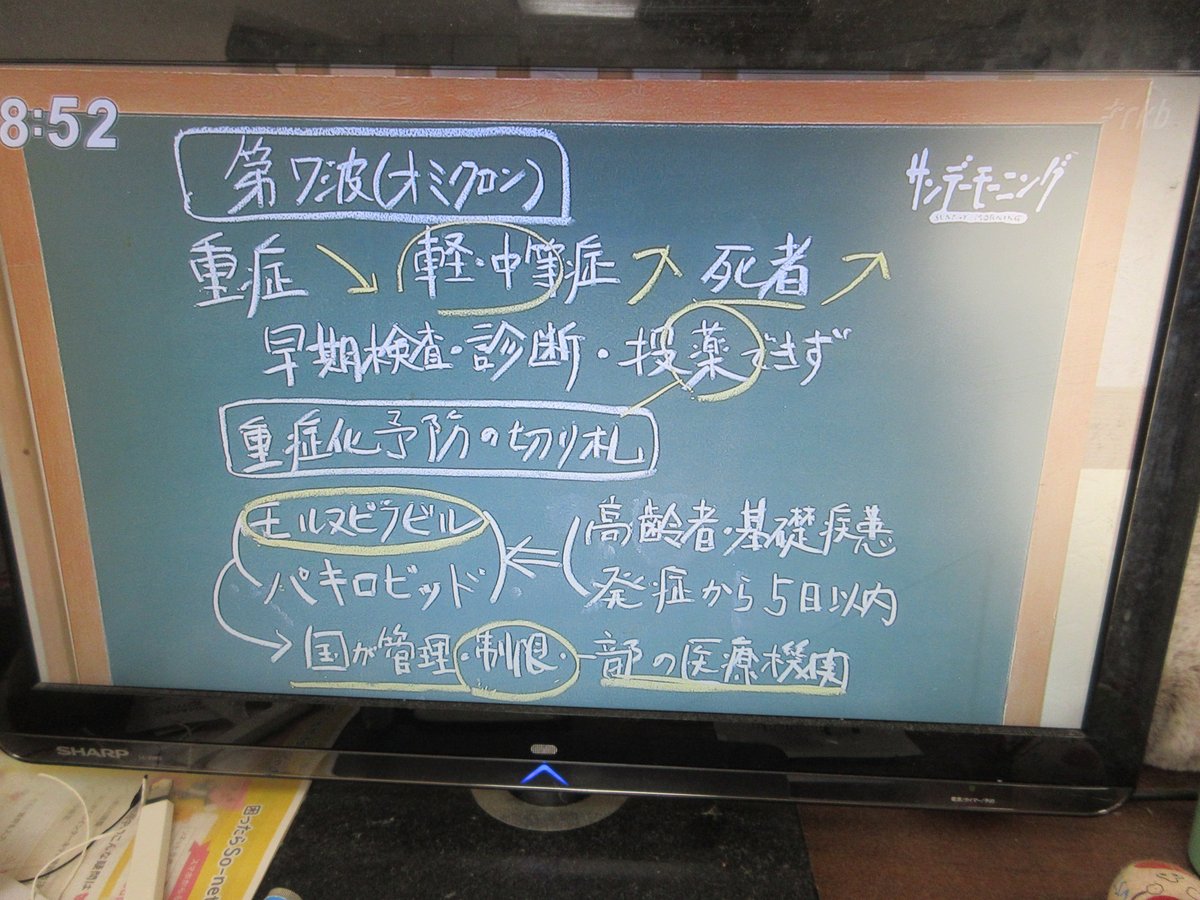 8:52
rkb
第7波(オミクロン)
サンデーモーニング
SUNDAY MORNING
重症 ↘ 軽・中等症 ↗ 死者 ↗
早期検査・診断・投薬できず
重症化予防の切り札
モルヌピラビル
高齢者・基礎疾患
パキロビッド
発症から5日以内
国が管理・制限・一部の医療機関
SHARP
困ったらSo-net